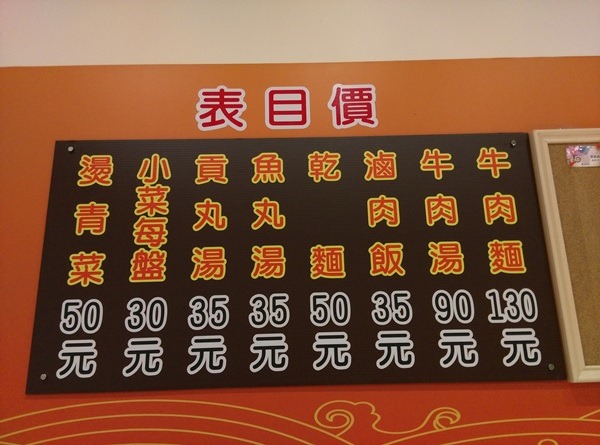 價目表
牛肉麵130元
牛肉湯90元
滷肉飯35元
乾麵50元
魚丸湯35元
貢丸湯35元
小菜每盤30元
燙青菜50元